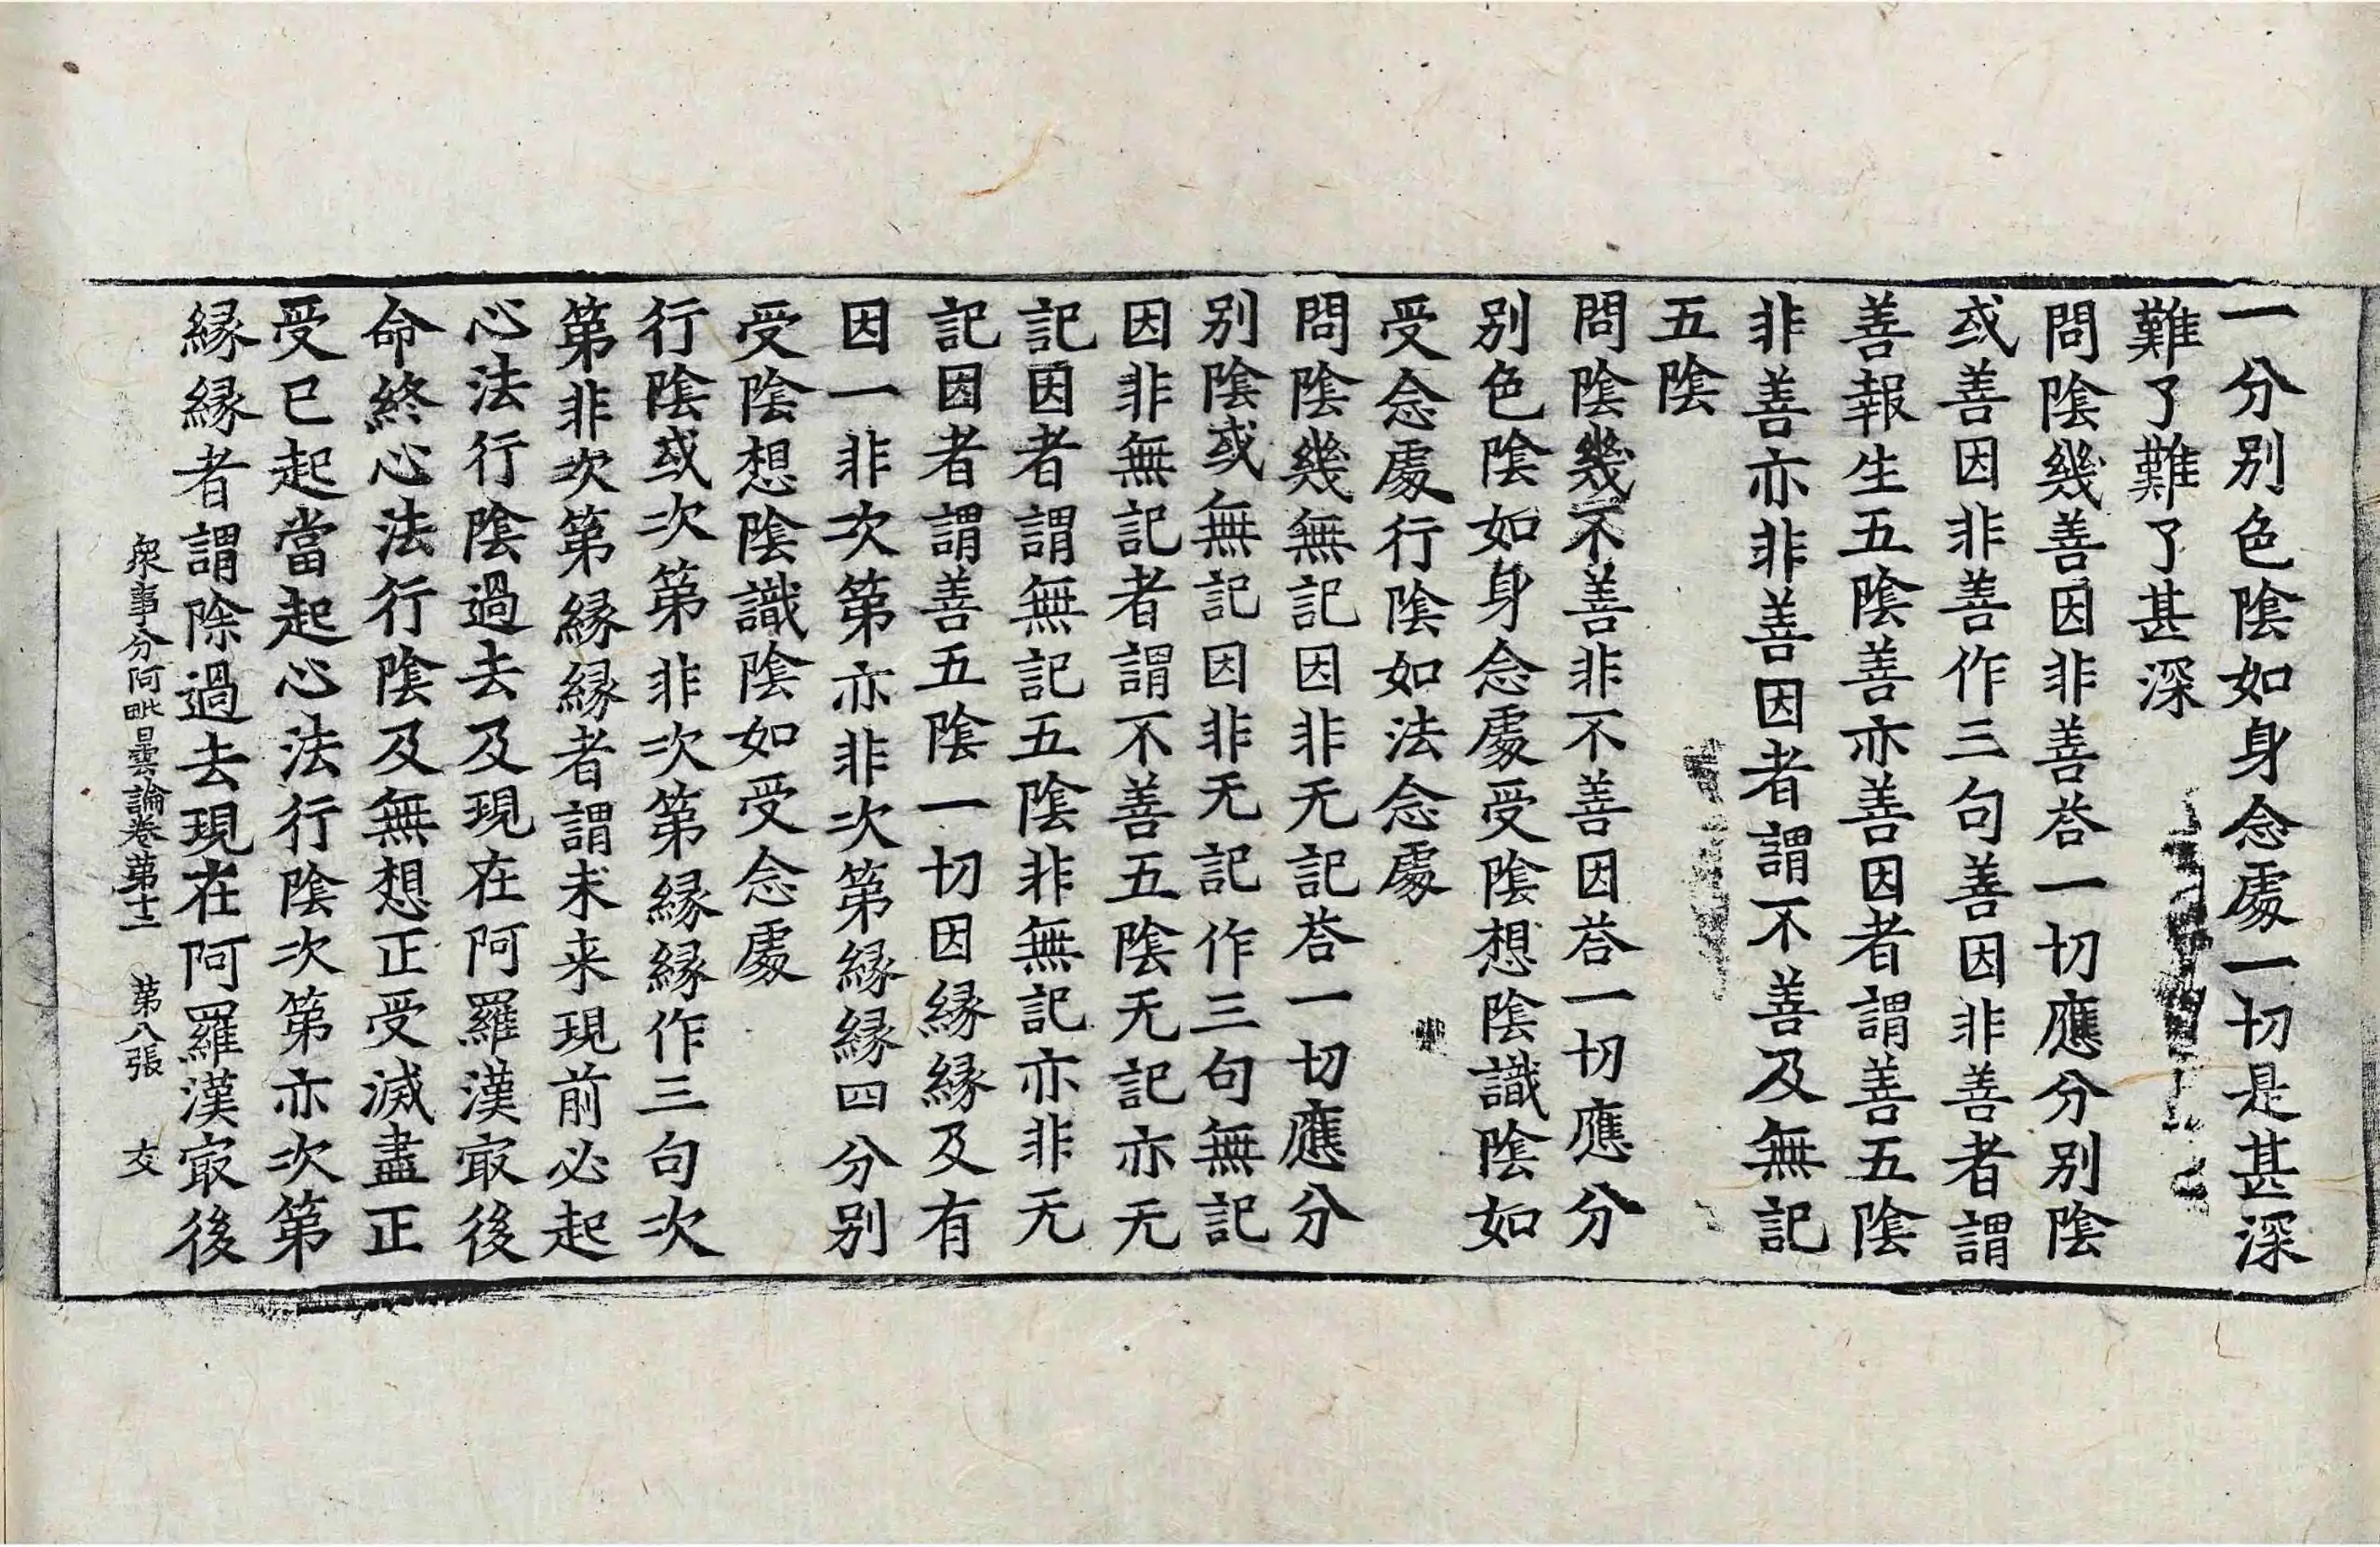 一分別色陰如身念處一切是甚深
難了難了甚深
問陰幾善因非善荅一切應分別陰
或善因非善作三句善因非善者謂
善報生五陰善亦善因者謂善五陰
非善亦非善因者謂不善及無記
五陰
問陰幾不善非不善因荅一切應分
別色陰如身念處受陰想陰識陰如
受念處行陰如法念處
問陰幾無記因非无記荅一切應分
別陰或無記因非无記作三句無記
因非無記者謂不善五陰无記亦无
記因者謂無記五陰非無記亦非无
記因者謂善五陰一切因緣緣及有
因一非次第亦非次第緣緣四分別
受陰想陰識陰如受念處
行陰或次第非次第緣緣作三句次
第非次第緣緣者謂未来現前必起
心法行陰過去及現在阿羅漢㝡後
命終心法行陰及無想正受滅盡正
受已起當起心法行陰次第亦次第
緣緣者謂除過去現在阿羅漢㝡後
衆事分阿毗曇論卷第十二 第八張 交